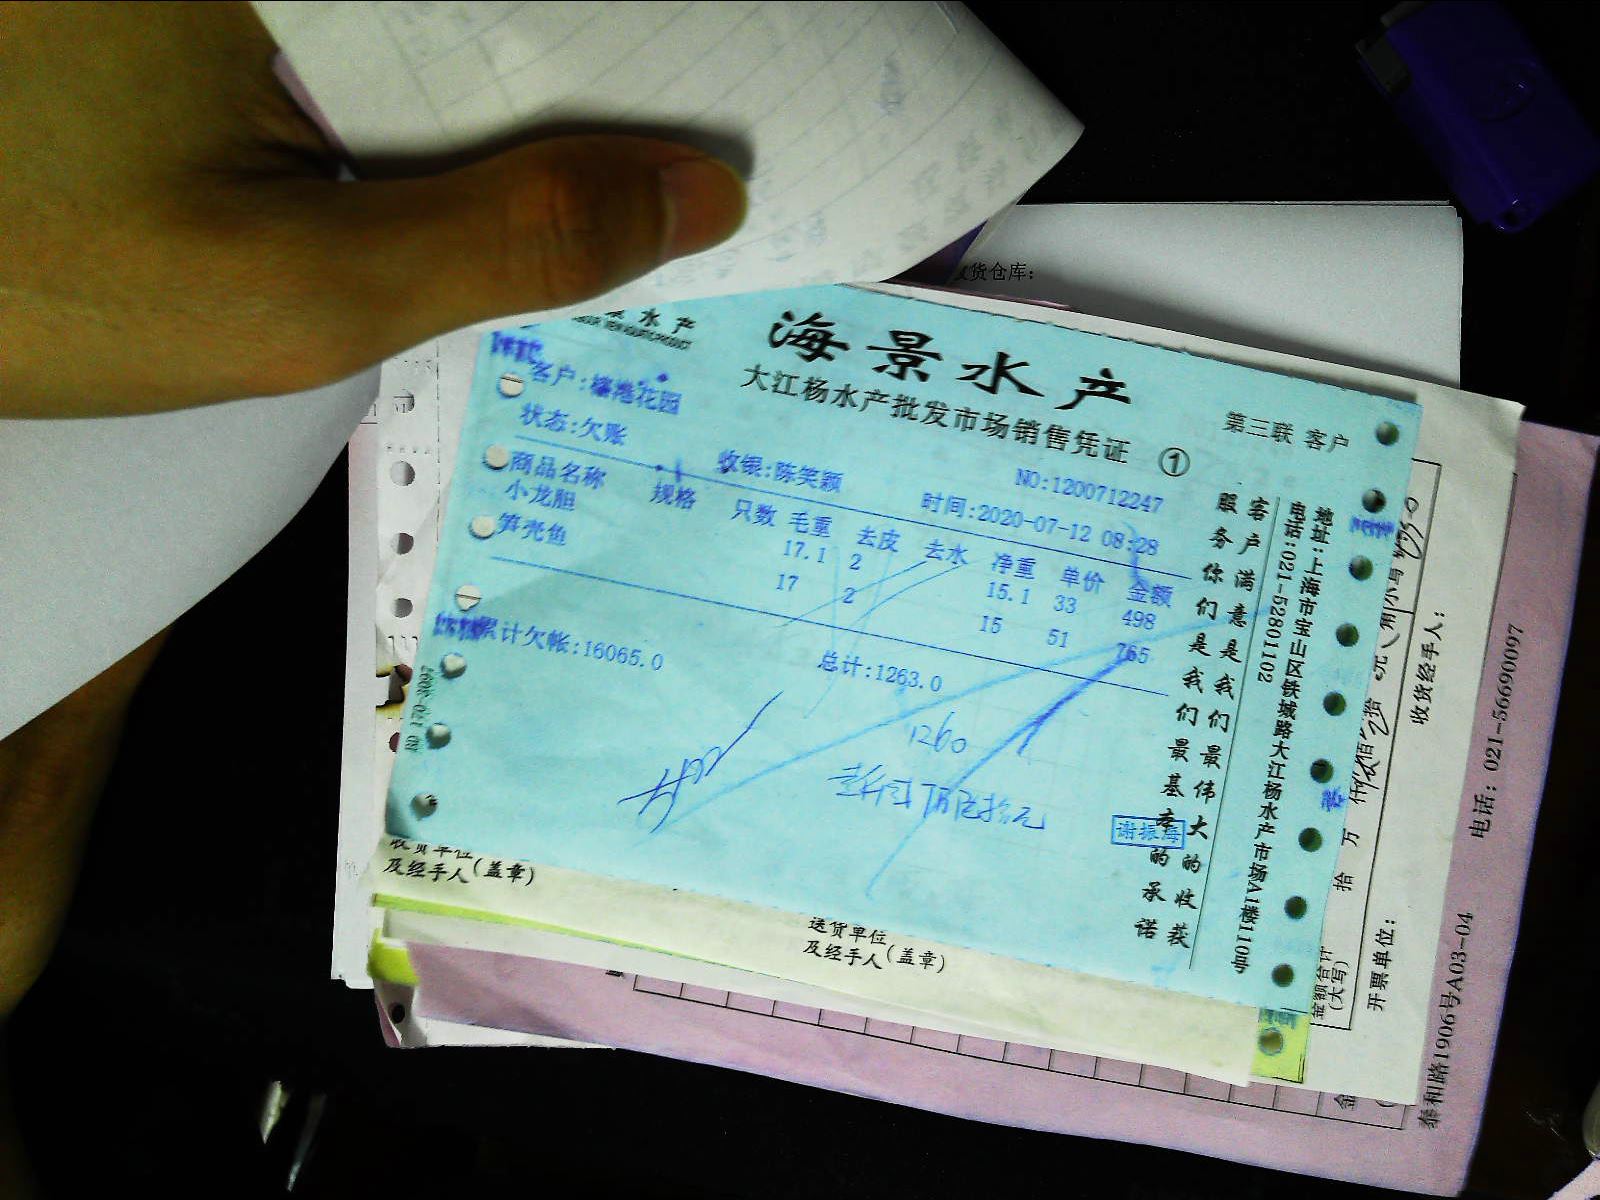 收货仓库：
水产
海景水产
大江杨水产批发市场销售凭证 ①
第三联 客户
客户:花园
状态:欠账
收银:陈笑颖
NO:1200712247
时间:2020-07-12 08:28
商品名称 规格 只数 毛重 去皮 去水 净重 单价 金额
小龙胆 17.1 2 15.1 33 498
笋壳鱼 17 2 15 51 765
累计欠帐:16065.0
总计:1263.0
1260
谢振海
客户满意是我们最伟大的收获
服务你们是我们最基本的承诺
地址:上海市宝山区铁城路大江杨水产市场A1楼1110号
电话:021-52801102
收货单位
及经手人(盖章)
送货单位
及经手人(盖章)
金额合计
(大写)
拾 万 仟 佰 拾 元
收货经手人：
开票单位：
电话：021-56690097
泰和路1906号A03-04
金